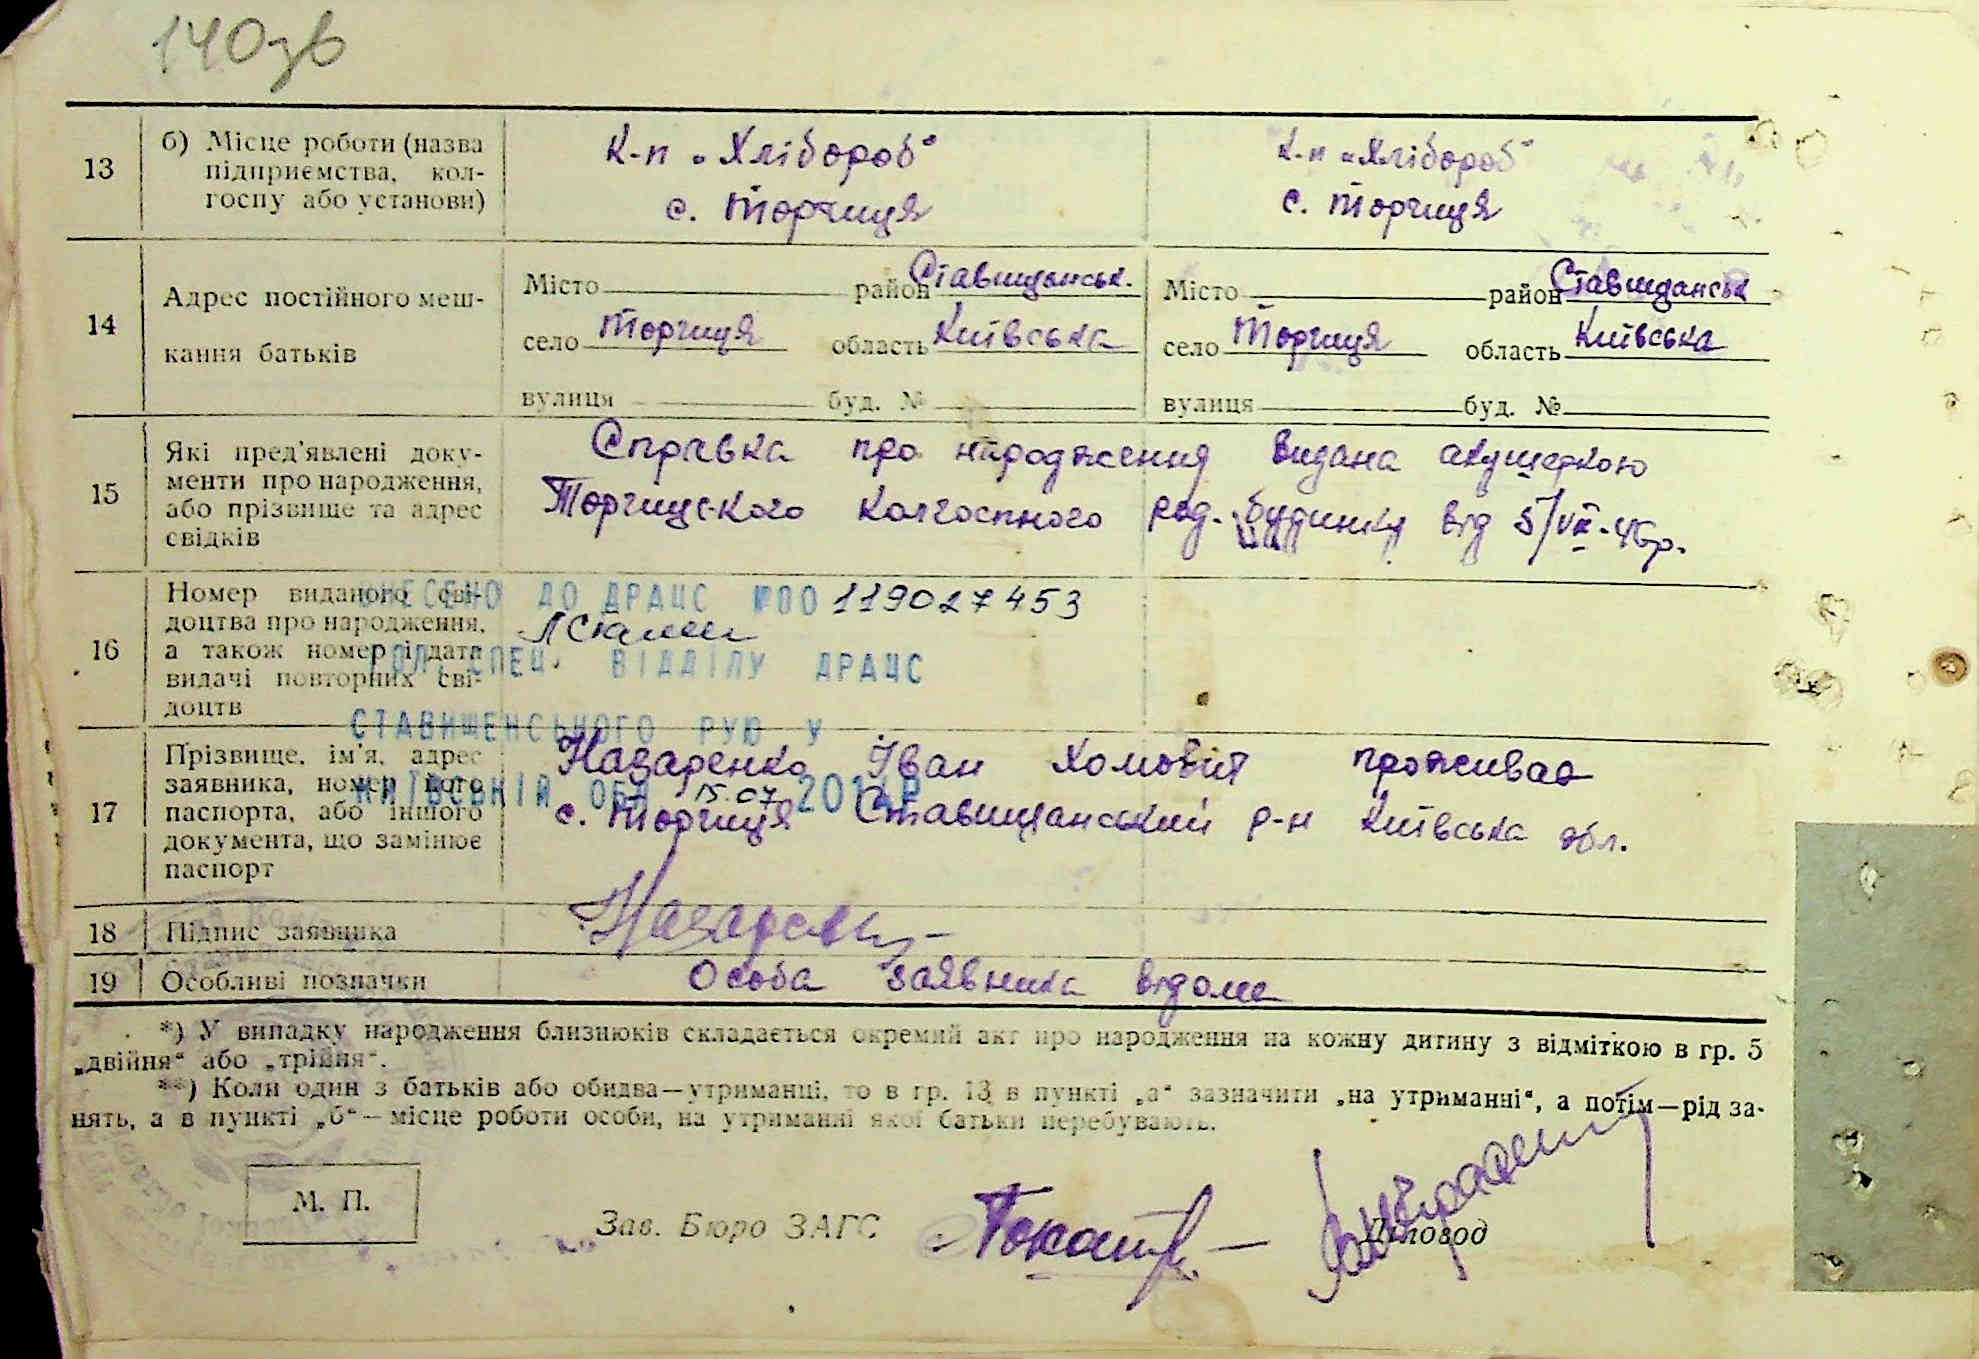 140зв
13 б) Місце роботи (назва підприємства, колгоспу або установи)
К-п „Хлібороб“ К-п „Хлібороб“
с. Торчиця с. Торчиця
14 Адрес постійного мешкання батьків
Місто район Ставищанськ. Місто район Ставищанськ
село Торчиця область Київська село Торчиця область Київська
вулиця буд. № вулиця буд. №
15 Які пред'явлені документи про народження, або прізвище та адрес свідків
Справка про народження видана акушеркою
Торчицького колгоспного род. будинку від 5/VII-46р.
16 Номер виданого свідоцтва про народження, а також номер і дата видачі повторних свідоцтв
ВНЕСЕНО ДО ДРАЦС №00119027453
СПЕЦ. ВІДДІЛУ ДРАЦС
СТАВИЩЕНСЬКОГО РУЮ У
КИЇВСЬКІЙ ОБЛ. 15.07 2014Р
17 Прізвище, ім'я, адрес заявника, номер його паспорта, або іншого документа, що замінює паспорт
Назаренко Іван Хомович проживає
с. Торчиця Ставищанський р-н Київська обл.
18 Підпис заявника
Назаренко
19 Особливі позначки Особа заявника відома
*) У випадку народження близнюків складається окремий акт про народження на кожну дитину з відміткою в гр. 5
„двійня“ або „трійня“.
**) Коли один з батьків або обидва—утриманці, то в гр. 13 в пункті „а“ зазначити „на утриманні“, а потім—рід за-
нять, а в пункті „б“—місце роботи особи, на утриманні якої батьки перебувають.
М. П.
Зав. Бюро ЗАГС Діловод